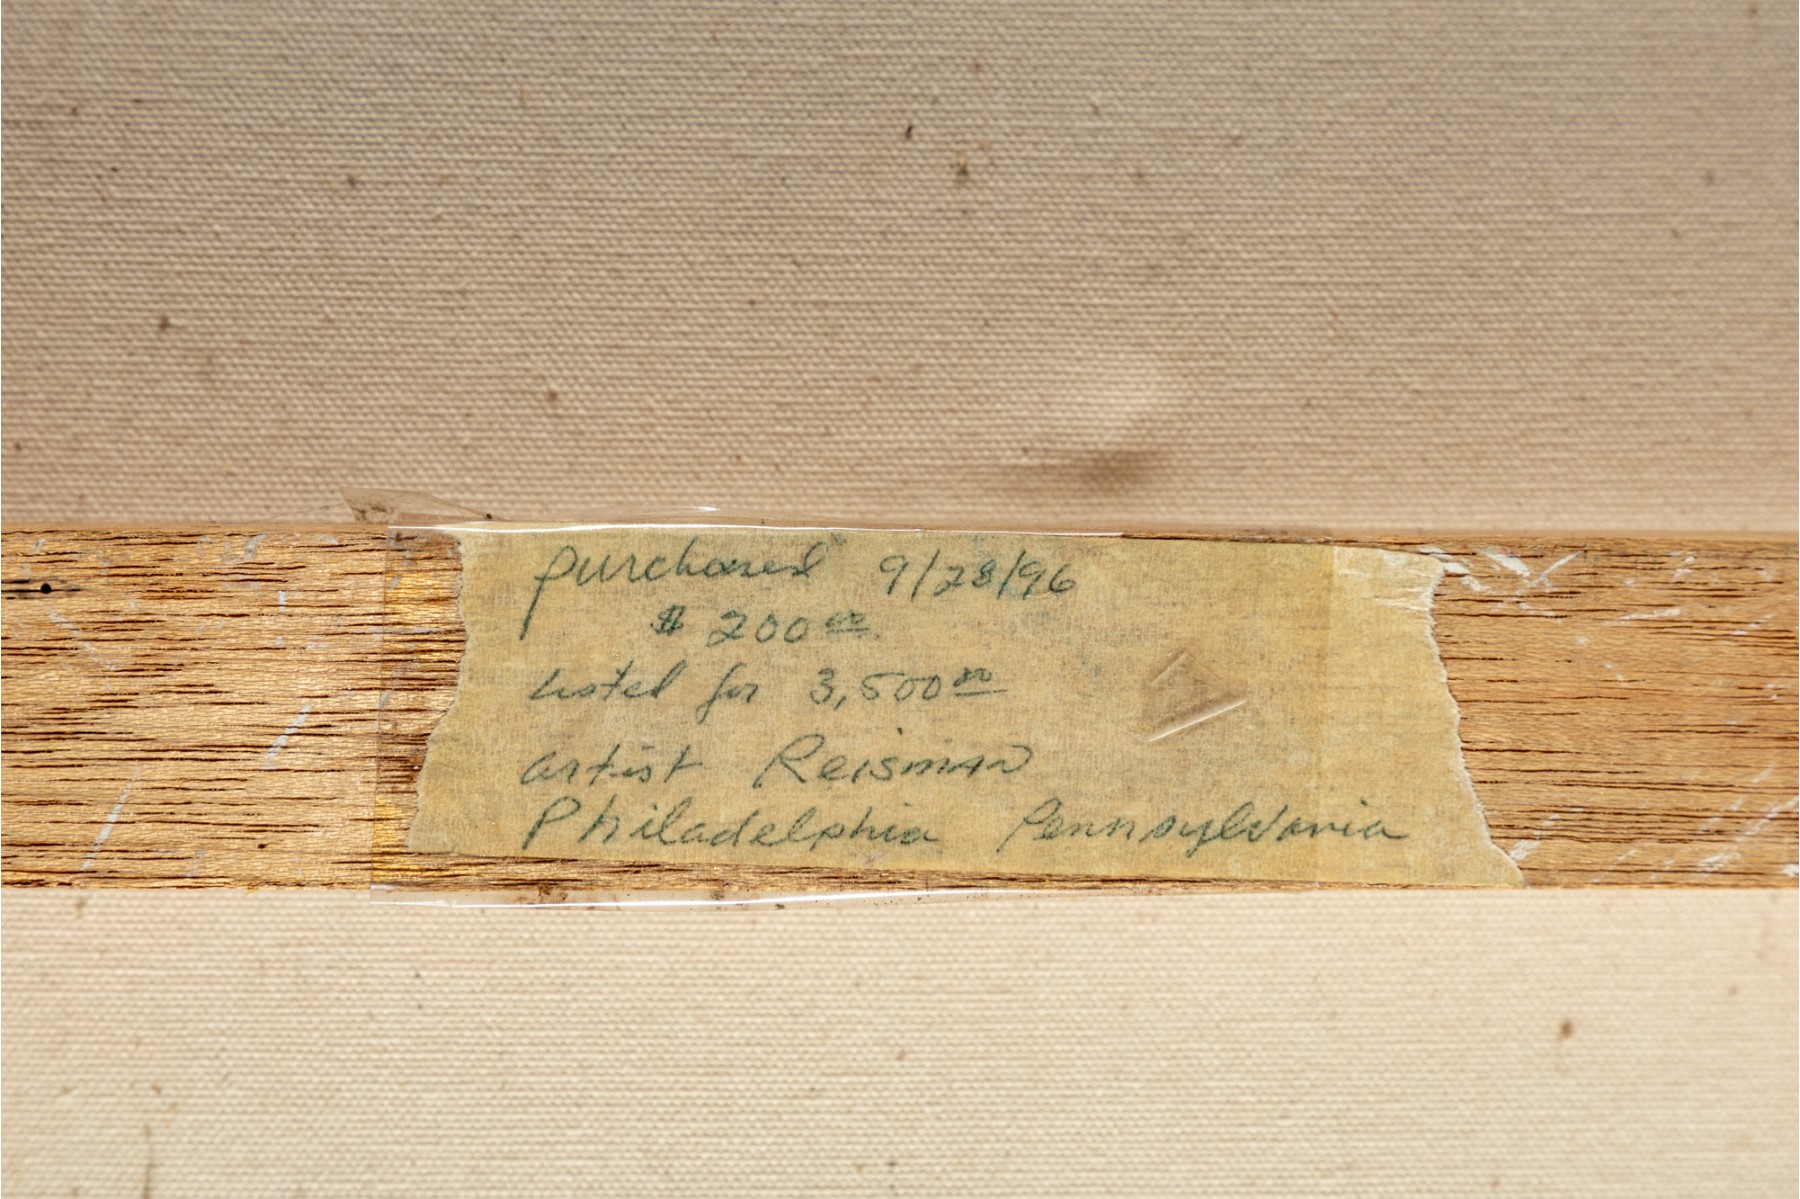 purchased 9/28/96
$ 200.00
Listed for 3,500.00
artist Reisman
Philadelphia Pennsylvania